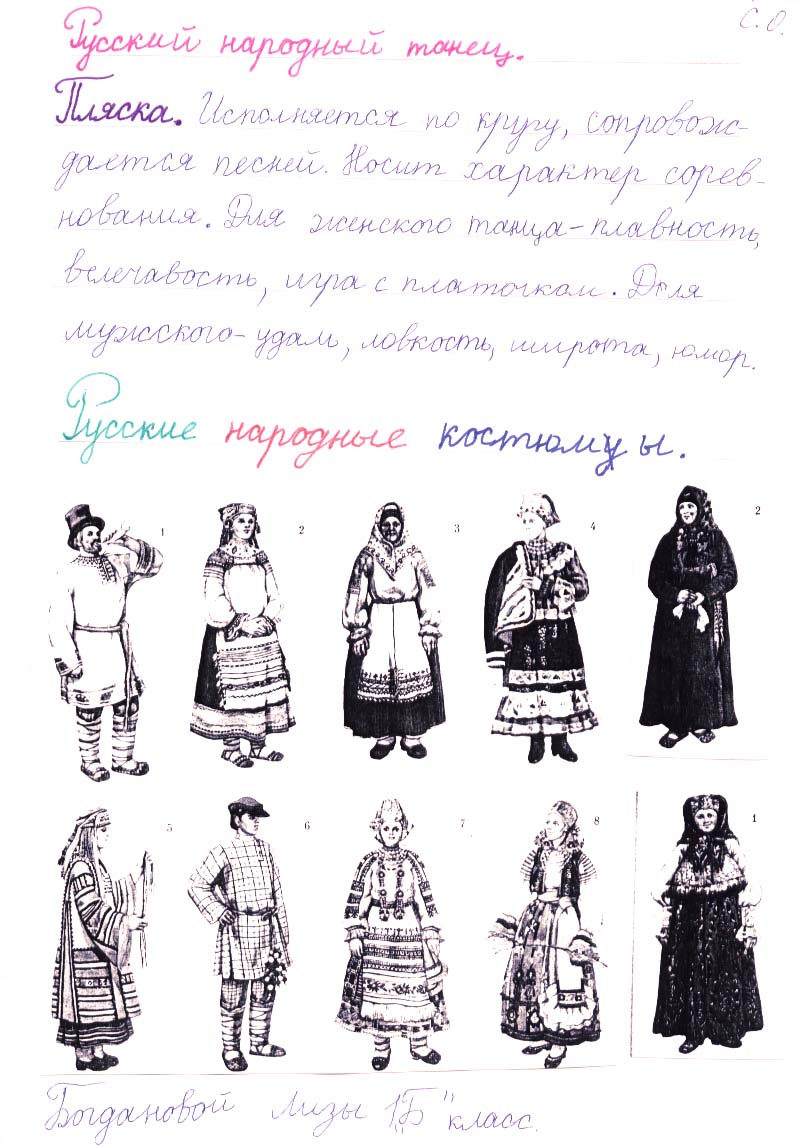 С. О.
Русский народный танец.
Пляска. Исполняется по кругу, сопровож-
дается песней. Носит характер сорев-
нования. Для женского танца-плавность,
велечавость, игра с платочком. Для
мужского-удаль, ловкость, широта, юмор.
Русские народные костюмы.
1 2 3 4 2
5 6 7 8 1
Богдановой Лизы 1 „Б" класс.